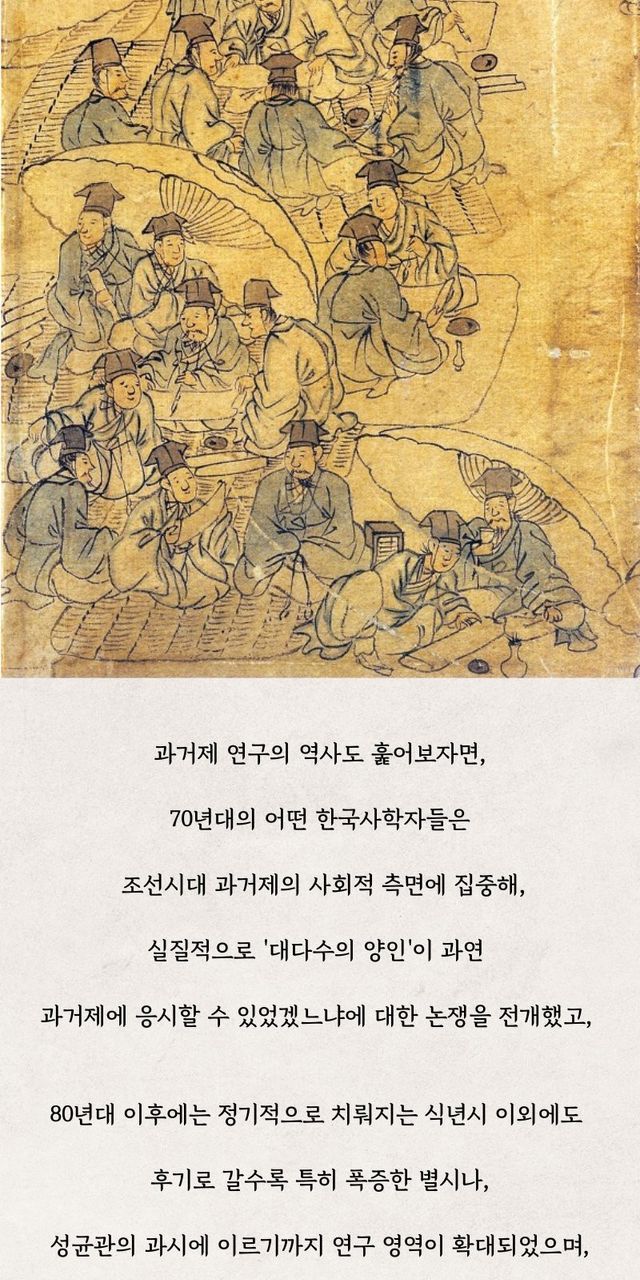 과거제 연구의 역사도 훑어보자면,
70년대의 어떤 한국사학자들은
조선시대 과거제의 사회적 측면에 집중해,
실질적으로 '대다수의 양인'이 과연
과거제에 응시할 수 있었겠느냐에 대한 논쟁을 전개했고,
80년대 이후에는 정기적으로 치뤄지는 식년시 이외에도
후기로 갈수록 특히 폭증한 별시나,
성균관의 과시에 이르기까지 연구 영역이 확대되었으며,